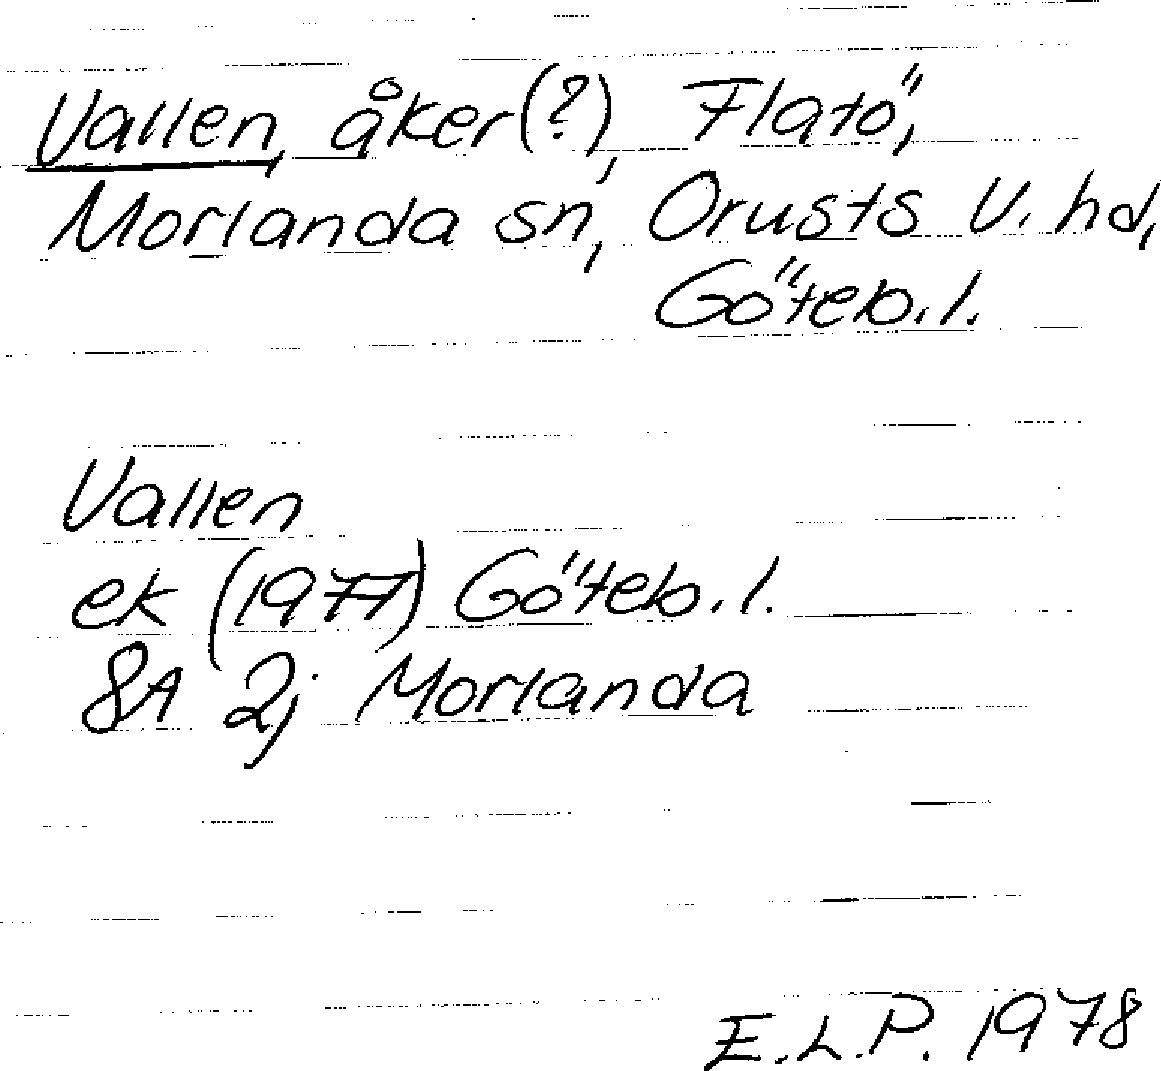 Vallen, åker(?), Flatö,
Morlanda sn, Orusts V. hd,
Göteb. l.
Vallen
ek (1977) Göteb. l.
8A 2j Morlanda
E.L.P. 1978